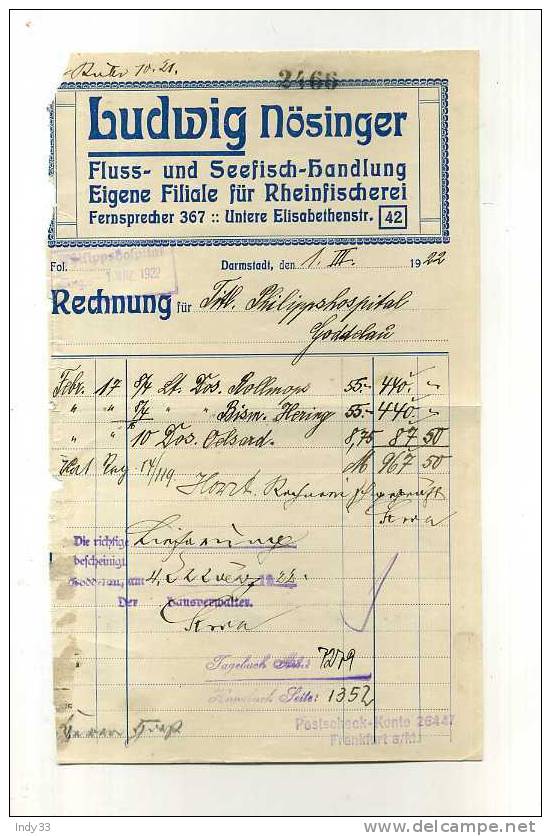 2466
Ludwig Nösinger
Fluss- und Seefisch-Handlung
Eigene Filiale für Rheinfischerei
Fernsprecher 367 :: Untere Elisabethenstr. 42
Fol. Philippshospital
1922
Darmstadt, den 1. III. 1922
Rechnung für Titl. Philippshospital
Goddelau
Febr. 17 8/4 Lt. Dos. Rollmops 55.- 440.-
" " 8/4 " " Bism. Hering 55.- 440.-
" " 10 Dos. Oelsard. 8,75 87 50
M 967 50
Die richtige Lieferung
bescheinigt
Goddelau, am 4. März 1922.
Der Hausverwalter.
Tagebuch 7279
Seite: 1352
Postscheck-Konto 26447
Frankfurt a/M.
Indy33
www.delcampe.net